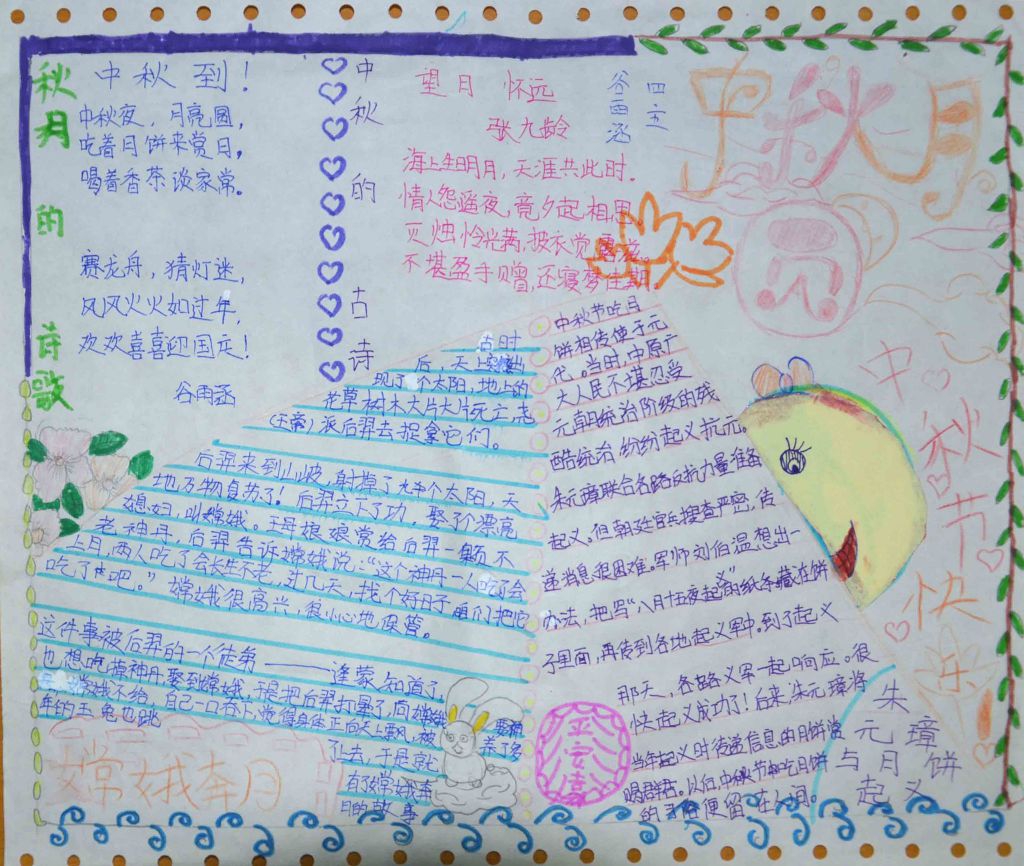 秋月的诗歌
中秋到！
中秋夜，月亮圆，
吃着月饼来赏月，
喝着香茶谈家常。
赛龙舟，猜灯迷，
风风火火如过年，
欢欢喜喜迎国庄！
谷雨函
中秋的古诗
望月怀远
张九龄
海上生明月，天涯共此时．
情人怨遥夜，竟夕起相思．
灭烛怜光满，披衣觉露滋．
不堪盈手赠，还寝梦佳期．
四主
谷雨函
中秋月
中秋节快乐
古时
后，天上突然出
现了个太阳，地上的
花草树木大片大片死亡，
派后羿去捉拿它们。
后羿来到山坡，射掉了九个太阳，天
地万物复苏了！后羿立下了功，娶了个漂亮
媳妇，叫嫦娥。王母娘娘赏给后羿一颗不
老神丹，后羿告诉嫦娥说：“这个神丹一人吃了会
上月，两人吃了会长生不老，过几天，找个好日子咱们把它
吃了吧。”嫦娥很高兴，很小心地保管。
这件事被后羿的一个徒弟——逢蒙知道了，
也想吃神丹，娶到嫦娥，于是把后羿打晕了，向嫦娥
嫦娥不给，自己一口吞下，觉得身体正向天上飘，被
年的玉兔也跳
养了多
了上去，于是就
有了嫦娥奔
月的故事
嫦娥奔月
中秋节吃月
饼相传使于元
代。当时，中原广
大人民不堪忍受
元朝统治阶级的残
酷统治，纷纷起义抗元。
朱元璋联合各路反抗力量准备
起义。但朝廷官兵搜查严密，传
递消息很困难。军师刘伯温想出一
办法，把写“八月十五夜起义”的纸条藏在饼
子里面，再传到各地起义军中。到了起义
那天，各路义军一起响应。很
快起义成功了！后来，朱元璋将
当年起义时传递信息的月饼赏
赐群臣。以后，中秋节和吃月饼
的习俗便留在人间。
平安喜
朱元璋与月饼起义